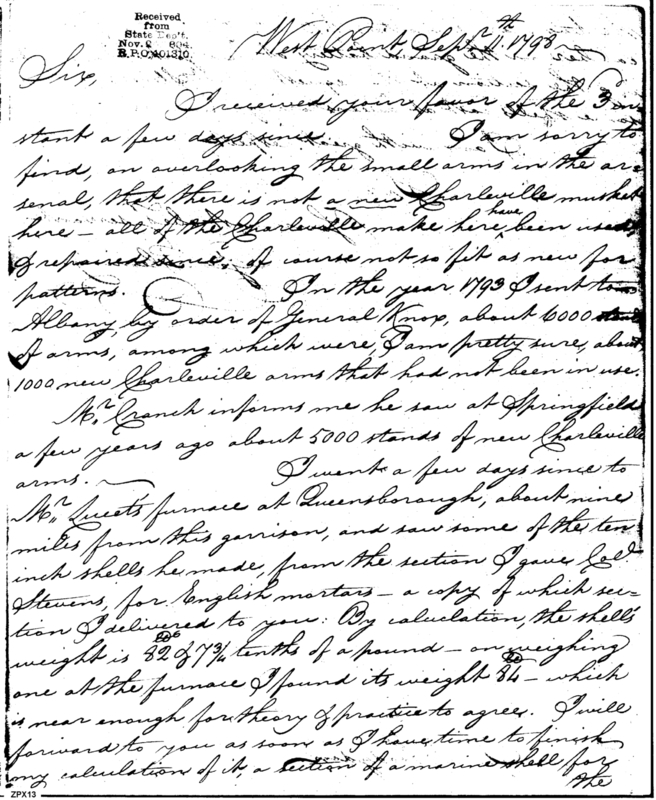 Received
from
State Dep't.
Nov. 2 804.
R.P.O. 401310.
West Point, Sepr. 11th 1798
Sir,
I received your favor of the 3 in
stant a few days since. I am sorry to
find, on overlooking the small arms in the ar=
senal, that there is not a new Charleville musket
here – all of the Charleville make here have been used
& repaired since, of course not so fit as new for
patterns. In the year 1793 I sent to
Albany, by order of General Knox, about 6000
of arms, among which were, I am pretty sure, about
1000 new Charleville arms that had not been in use.
Mr. Cranch informs me he saw at Springfield
a few years ago about 5000 stands of new Charleville
arms. I went a few days since to
Mr. furnace at Queensborough, about nine
miles from this garrison, and saw some of the ten
inch shells he made, from the section I gave Col.
Stevens, for English mortars – a copy of which sec=
tion I delivered to you: By calculation, the shell's
weight is 82 & 7 3/4 tenths of a pound – on weighing
one at the furnace I found its weight 84 – which
is near enough for theory & practice to agree. I will
forward to you as soon as I have time to finish
my calculation of it, a section of a marine shell for
the
ZPX13